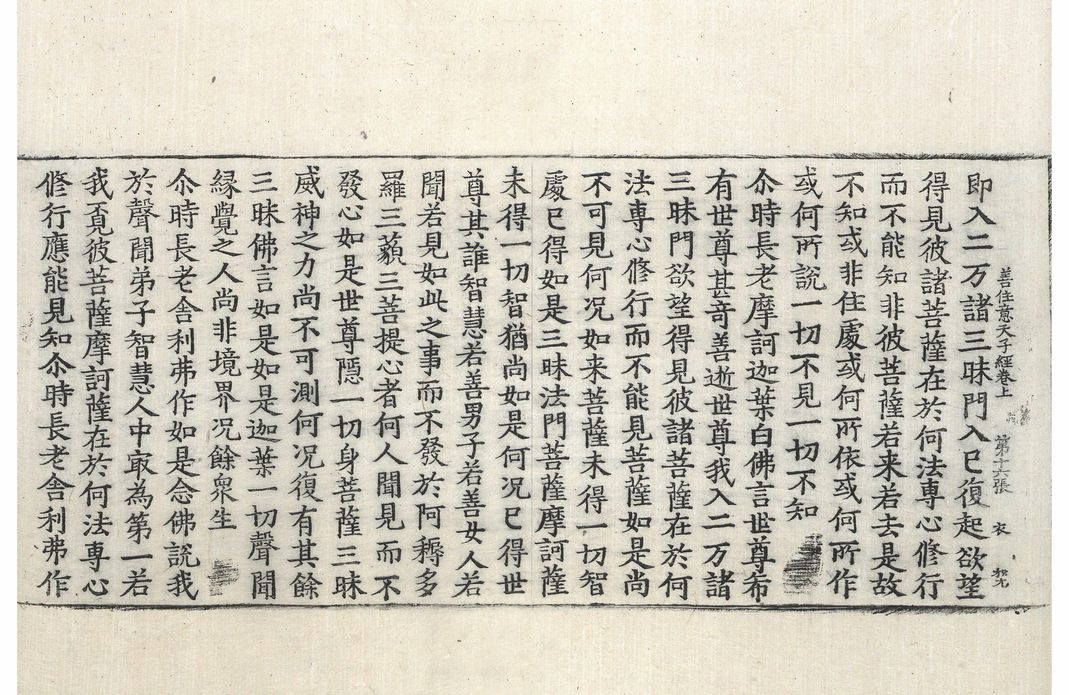 善住意天子經卷上 第十六張 衣
即入二万諸三昧門入已復起欲望
得見彼諸菩薩在於何法專心修行
而不能知非彼菩薩若来若去是故
不知或非住處或何所依或何所作
或何所說一切不見一切不知
尒時長老摩訶迦葉白佛言世尊希
有世尊甚奇善逝世尊我入二万諸
三昧門欲望得見彼諸菩薩在於何
法專心修行而不能見菩薩如是尚
不可見何況如来菩薩未得一切智
處已得如是三昧法門菩薩摩訶薩
未得一切智猶尚如是何況已得世
尊其誰智慧若善男子若善女人若
聞若見如此之事而不發於阿耨多
羅三藐三菩提心者何人聞見而不
發心如是世尊隱一切身菩薩三昧
威神之力尚不可測何況復有其餘
三昧佛言如是如是迦葉一切聲聞
緣覺之人尚非境界況餘衆生
尒時長老舍利弗作如是念佛說我
於聲聞弟子智慧人中㝡為第一若
我覔彼菩薩摩訶薩在於何法專心
修行應能見知尒時長老舍利弗作